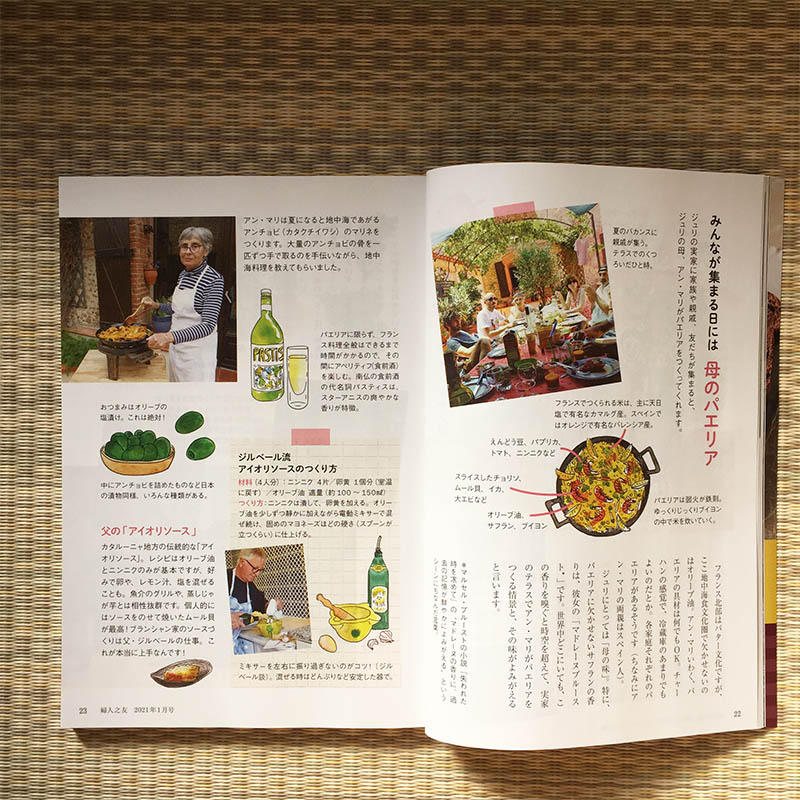 みんなが集まる日には 母のパエリア
ジュリの実家に家族や親戚、友だちが集まると、
ジュリの母、アン・マリがパエリアをつくってくれます。
夏のバカンスに
親戚が集う。
テラスでのくつ
ろいだひと時。
フランスでつくられる米は、主に天日
塩で有名なカマルグ産。スペインで
はオレンジで有名なバレンシア産。
えんどう豆、パプリカ、
トマト、ニンニクなど
スライスしたチョリソ、
ムール貝、イカ、
大エビなど
オリーブ油、
サフラン、ブイヨン
パエリアは弱火が鉄則。
ゆっくりじっくりブイヨン
の中で米を炊いていく。
フランス北部はバター文化ですが、
ここ地中海食文化圏で欠かせないの
はオリーブ油。アン・マリいわく、パ
エリアの具材は何でもOK。チャー
ハンの感覚で、冷蔵庫のあまりでも
よいのだとか。各家庭それぞれのパ
エリアがあるそうです（ちなみにア
ン・マリの両親はスペイン人）。
ジュリにとっては「母の味」。特に、
パエリアに欠かせないサフランの香
りは、彼女の「マドレーヌプルース
ト*」です！世界中どこにいても、こ
の香りを嗅ぐと時空を超えて、実家
のテラスでアン・マリがパエリアを
つくる情景と、その味がよみがえる
と言います。
*マルセル・プルーストの小説「失われた
時を求めて」の「マドレーヌの香りに、過
去の記憶が鮮やかによみがえる」という
シーンにちなんだ言葉。
22
アン・マリは夏になると地中海であがる
アンチョビ（カタクチイワシ）のマリネを
つくります。大量のアンチョビの骨を一
匹ずつ手で取るのを手伝いながら、地中
海料理を教えてもらいました。
PASTIS
パエリアに限らず、フラン
ス料理全般はできるまで
時間がかかるので、その
間にアペリティフ（食前酒）
を楽しむ。南仏の食前酒
の代名詞パスティスは、
スターアニスの爽やかな
香りが特徴。
おつまみはオリーブの
塩漬け。これは絶対！
中にアンチョビを詰めたものなど日本
の漬物同様、いろんな種類がある。
父の「アイオリソース」
カタルーニャ地方の伝統的な「アイ
オリソース」。レシピはオリーブ油
とニンニクのみが基本ですが、好
みで卵や、レモン汁、塩を混ぜる
ことも。魚介のグリルや、蒸しじゃ
が芋とは相性抜群です。個人的に
はソースをのせて焼いたムール貝
が最高！ブランシャン家のソースづ
くりは父・ジルベールの仕事。こ
れが本当に上手なんです！
ジルベール流
アイオリソースのつくり方
材料（4人分）：ニンニク 4片／卵黄 1個分（室温
に戻す）／オリーブ油 適量（約100〜150㎖）
つくり方：ニンニクは潰して、卵黄を加える。オリー
ブ油を少しずつ静かに加えながら電動ミキサーで混
ぜ続け、固めのマヨネーズほどの硬さ（スプーンが
立つくらい）に仕上げる。
ミキサーを左右に振り過ぎないのがコツ！（ジル
ベール談）。混ぜる時はどんぶりなど安定した器で。
23 婦人之友 2021年1月号